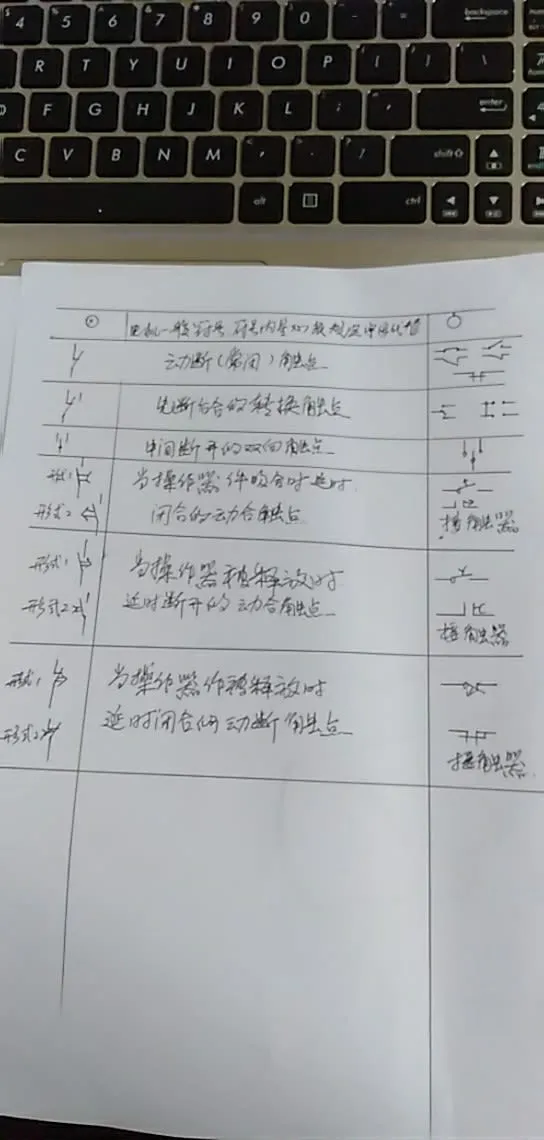 4 5 6 7 8 9 0 - = backspace
R T Y U I O P [ ] \
F G H J K L ; ' enter
C V B N M , . / shift
alt ctrl
电机一般符号 符号内星
动断(常闭)触点
先断后合的转换触点
中间断开的双向触点
形式1 当操作器件吸合时延时
形式2 闭合的动合触点 接触器
形式1 当操作器 释放时
形式2 延时断开的动合触点 接触器
形式1 当操作器 释放时
形式2 延时闭合 动断触点 接触器